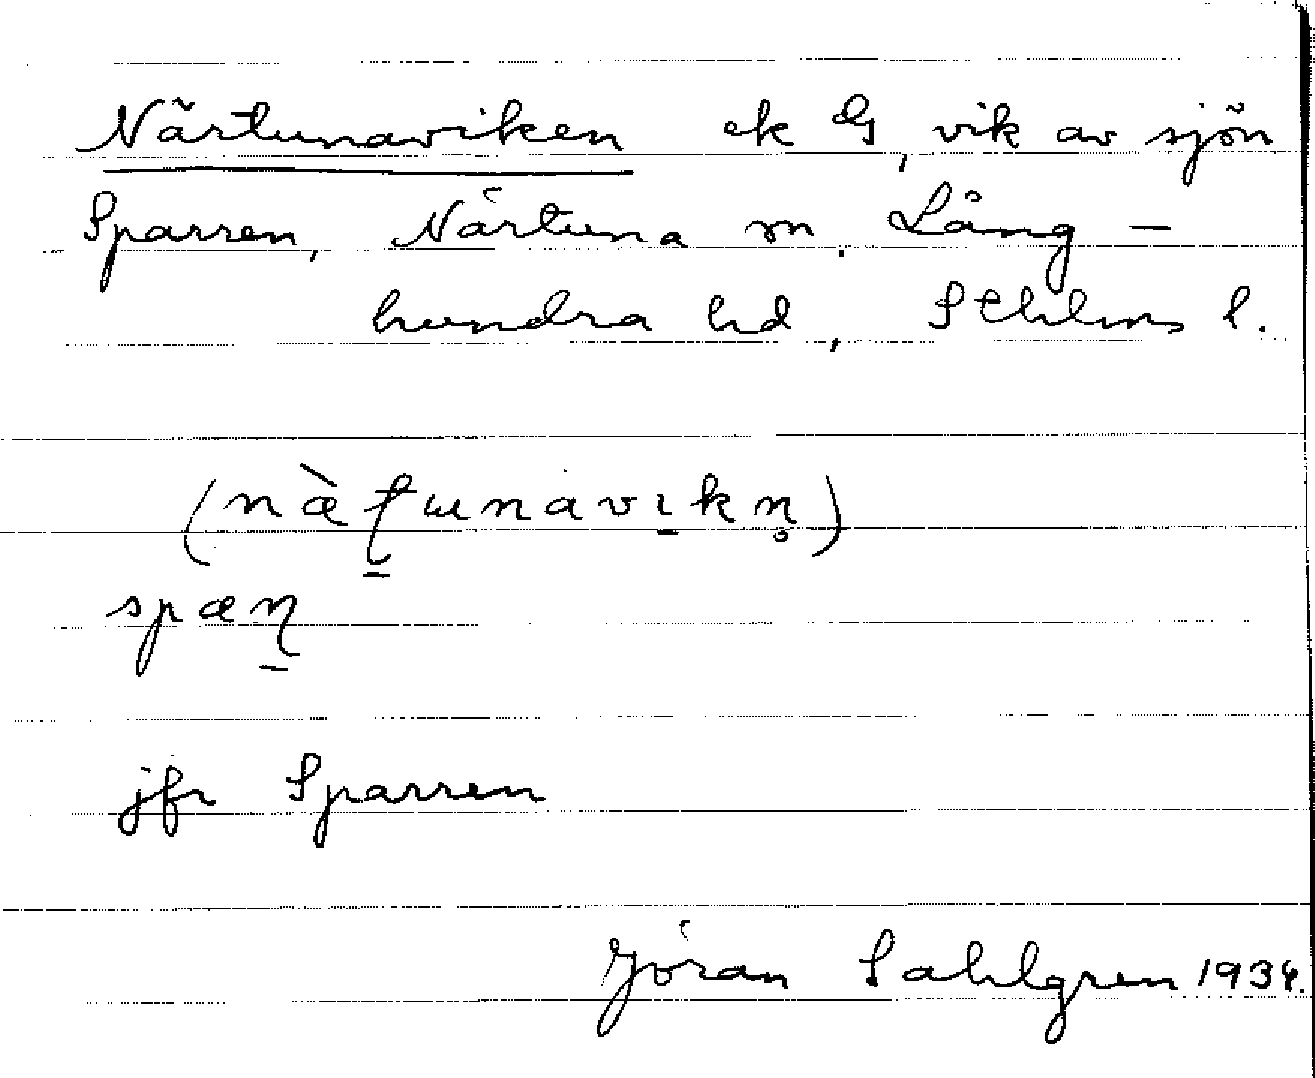 Närtunaviken ek G, vik av sjön
Sparren, Närtuna sn. Lång-
hundra hd, Sthlms l.
(næ̀ʈɯnavıkn̥)
spæɳ
jfr Sparren
Jöran Sahlgren 1934.